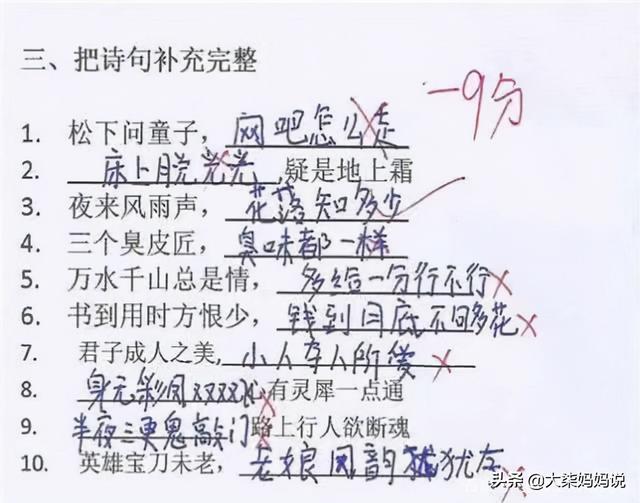 三、把诗句补充完整
-9分
1. 松下问童子，网吧怎么走
2. 床上脱光光,疑是地上霜
3. 夜来风雨声，花落知多少
4. 三个臭皮匠，臭味都一样
5. 万水千山总是情，多给一分行不行
6. 书到用时方恨少，钱到月底不够花
7. 君子成人之美,小人夺人所爱
8. 身无彩凤双双飞,有灵犀一点通
9. 半夜三更鬼敲门路上行人欲断魂
10. 英雄宝刀未老，老娘风韵犹存
头条 @大柒妈妈说